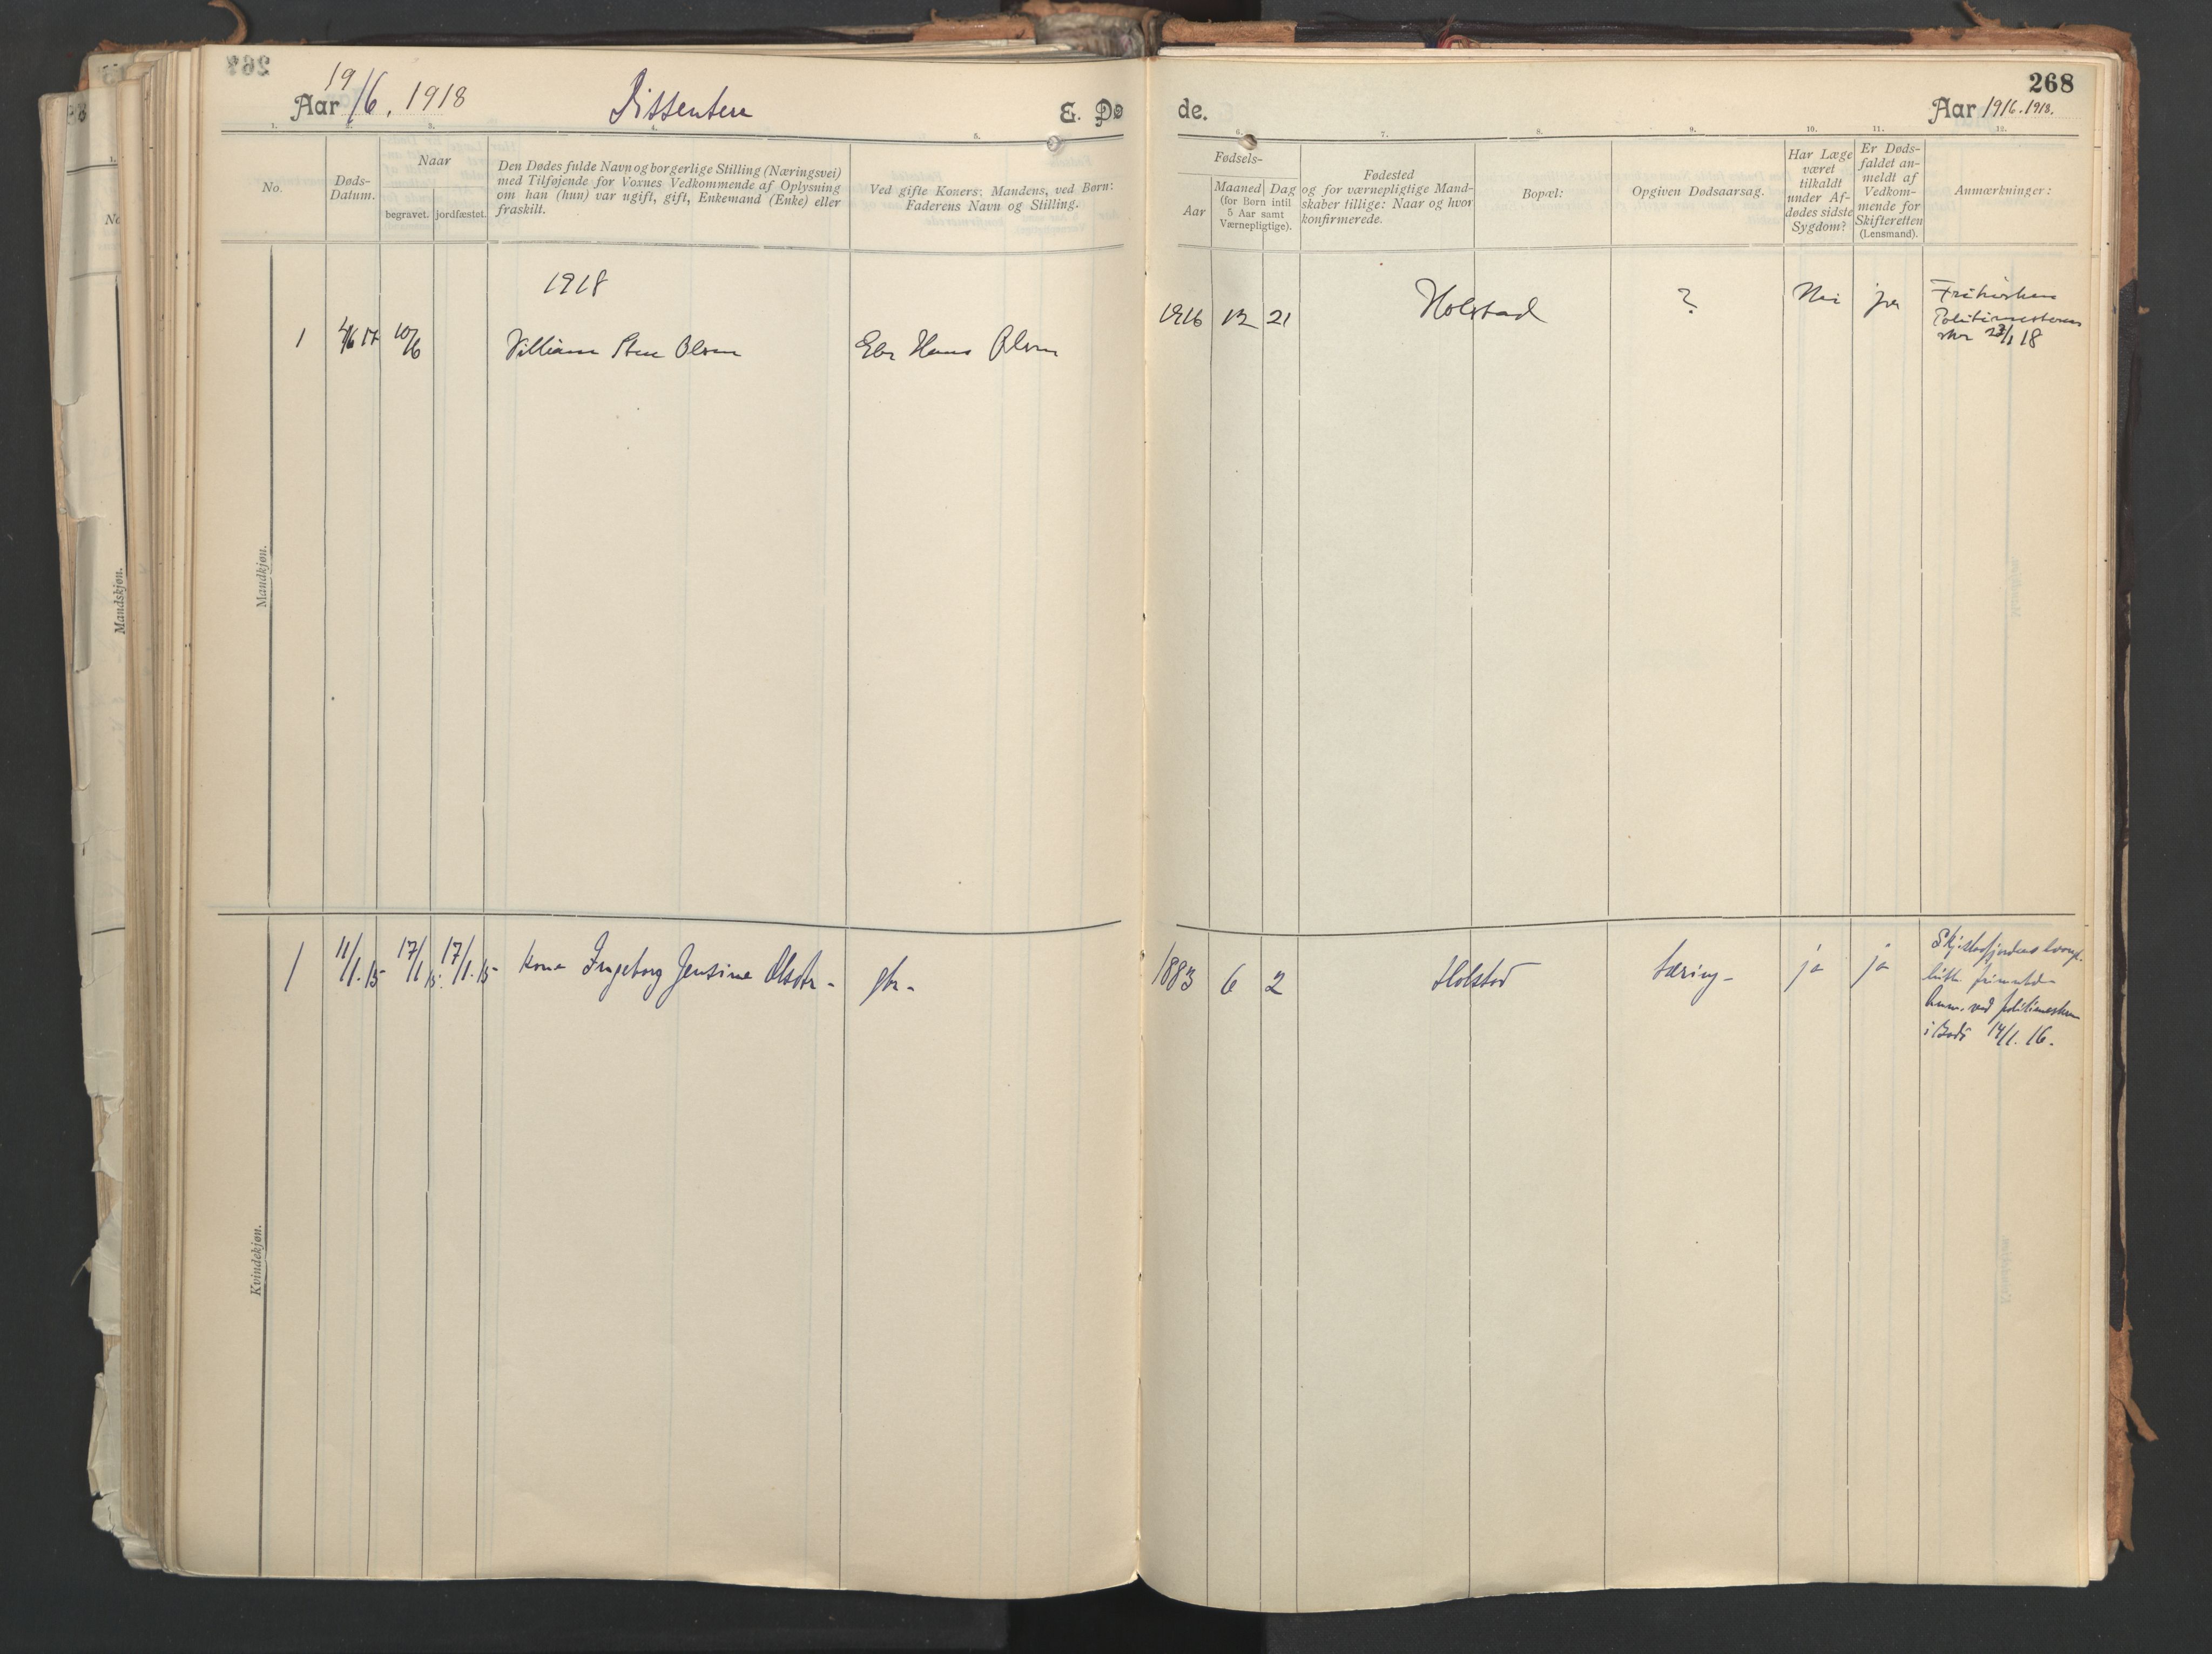 Aar 19/6, 1918
Dissentere
E. Dø
1.
2.
3.
4.
5.
No.
Døds-
Datum.
Naar
begravet.
jordfæstet.
Den Dødes fulde Navn og borgerlige Stilling (Næringsvei)
med Tilføjende for Voxnes Vedkommende af Oplysning
om han (hun) var ugift, gift, Enkemand (Enke) eller
fraskilt.
Ved gifte Koners: Mandens, ved Børn:
Faderens Navn og Stilling.
1918
1 4/6 17 10/6 Villiam Olsen Hans Olsen
Mandkjøn.
1 11/1.15 17/1 15. 17/1.15 Kone Ingeborg Jensine Olsdtr -
Kvindekjøn.
Mandskjøn.
de.
268
Aar 1916. 1918.
6.
7.
8.
9.
10.
11.
12.
Fødsels-
Aar
Maaned
(for Børn intil
5 Aar samt
Værnepligtige).
Dag
Fødested
og for værnepligtige Mand-
skaber tillige: Naar og hvor
konfirmerede.
Bopæl:
Opgiven Dødsaarsag.
Har Læge
været
tilkaldt
under Af-
dødes sidste
Sygdom?
Er Døds-
faldet an-
meldt af
Vedkom-
mende for
Skifteretten
(Lensmand).
Anmærkninger:
1916 12 21 Holstad ? Nei ja Frikirken
Politimesteren
skr 23/1 18
1883 6 2 Holstad Tæring - ja ja
ved politimesteren
i Bodø 14/1. 16.